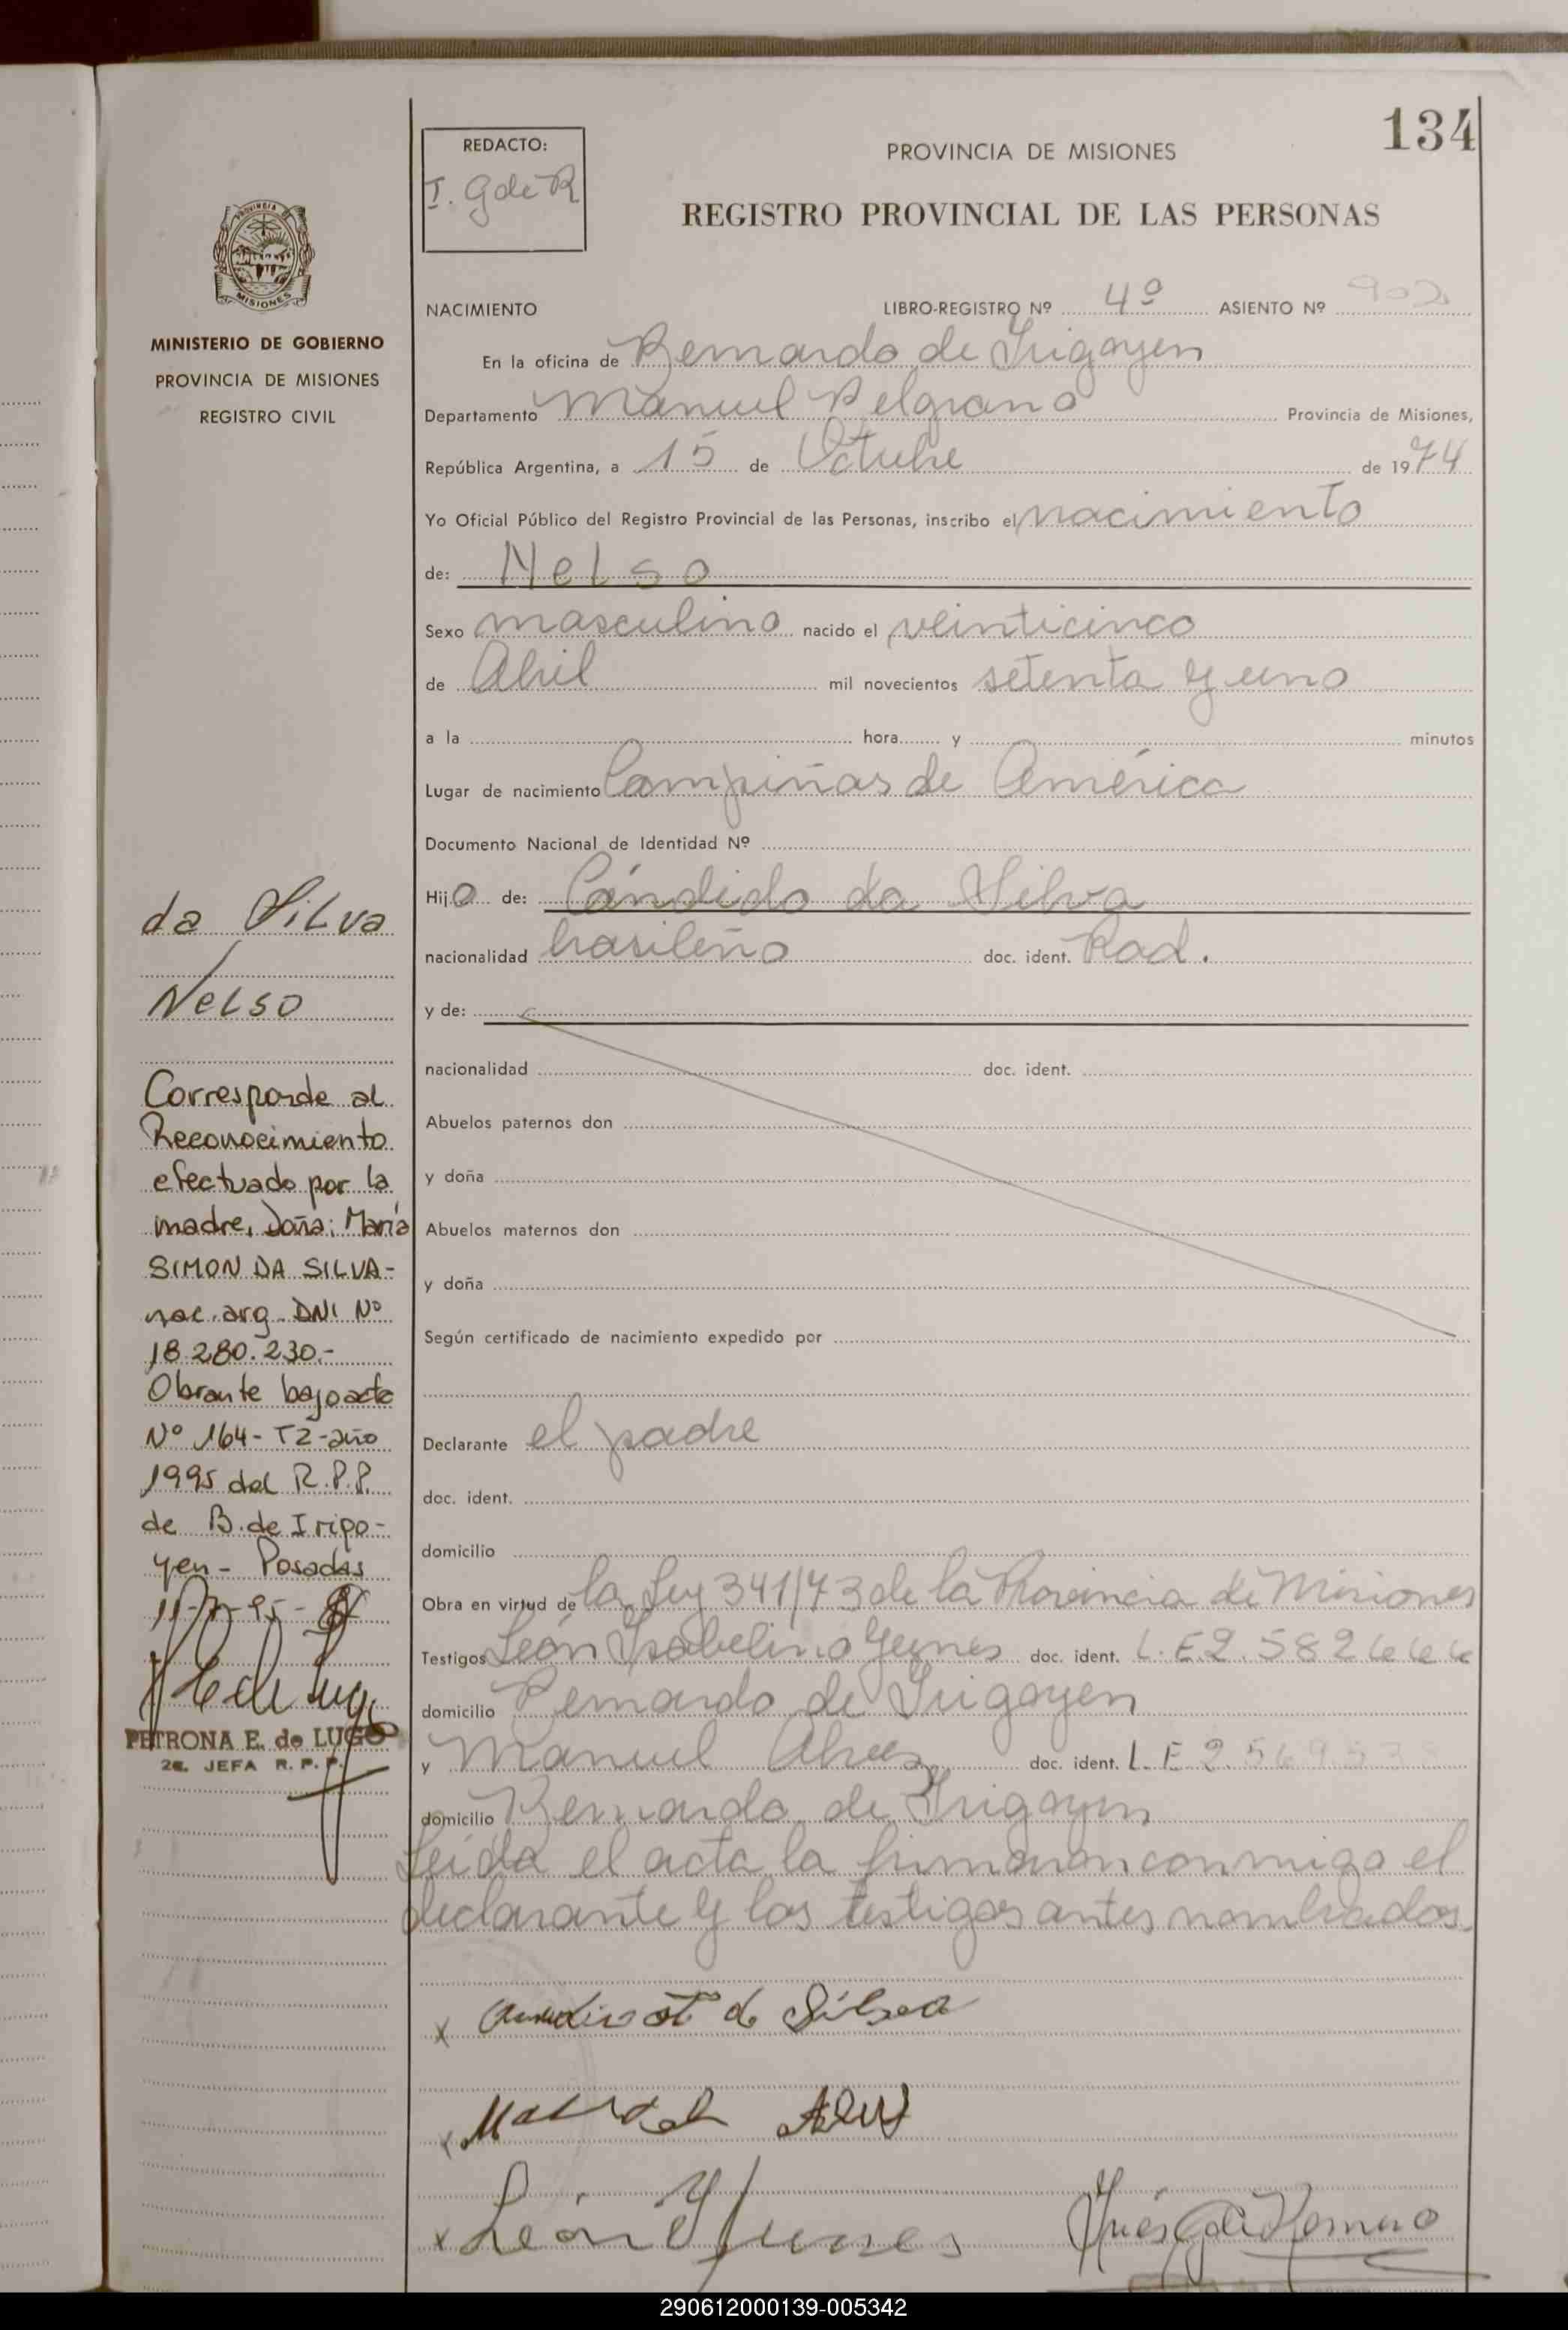 134
REDACTO:
I. G de R
PROVINCIA DE MISIONES
REGISTRO PROVINCIAL DE LAS PERSONAS
NACIMIENTO LIBRO-REGISTRO Nº 4º ASIENTO Nº 902
En la oficina de Bernardo de Irigoyen
Departamento Manuel Belgrano Provincia de Misiones,
República Argentina, a 15 de Octubre de 1974
Yo Oficial Público del Registro Provincial de las Personas, inscribo el nacimiento
de: Nelso
Sexo masculino nacido el veinticinco
de Abril mil novecientos setenta y uno
a la hora y minutos
Lugar de nacimiento Campiñas de América
Documento Nacional de Identidad Nº
Hijo de: Cándido da Silva
nacionalidad brasileño doc. ident. Rad.
y de:
nacionalidad doc. ident.
Abuelos paternos don
y doña
Abuelos maternos don
y doña
Según certificado de nacimiento expedido por
Declarante el padre
doc. ident.
domicilio
Obra en virtud de la Ley 341/73 de la Provincia de Misiones
Testigos León Isabelino Yunes doc. ident. L.E 2.582666
domicilio Bernardo de Irigoyen
y Manuel Alves doc. ident. L.E 2.569.53
domicilio Bernardo de Irigoyen
Leída el acta la firmaron conmigo el
declarante y los testigos antes nombrados.
x de Silva
x Manuel Alves
x León Yunes Inés G de Romero
PROVINCIA DE
MISIONES
MINISTERIO DE GOBIERNO
PROVINCIA DE MISIONES
REGISTRO CIVIL
da Silva
Nelso
Corresponde al
Reconocimiento
efectuado por la
madre, Doña: María
SIMON DA SILVA-
nac. arg. DNI Nº
18.280.230.-
Obrante bajo acta
Nº 164- T2-año
1995 del R.P.P.
de B. de Irigo-
yen- Posadas
PETRONA E. de LUGO
2a. JEFA R. P. P.
290612000139-005342